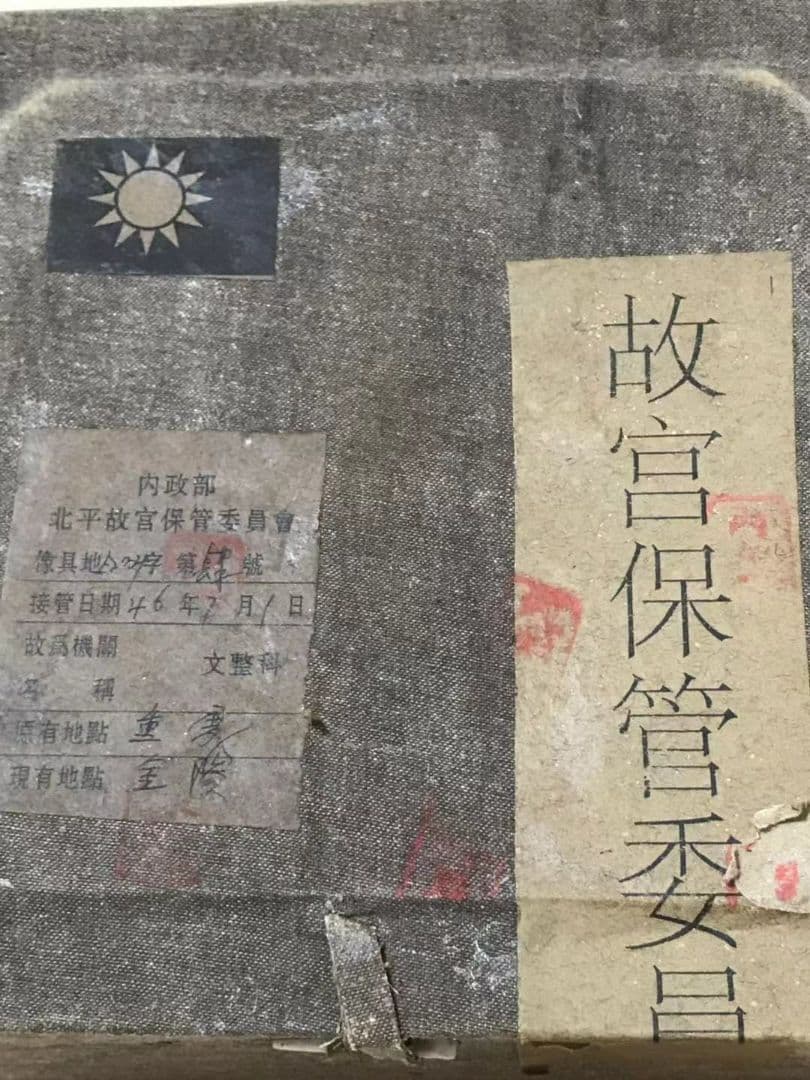 故宮保管委員
內政部
北平故宮保管委員會
傢具地 字 第肆號
接管日期46年7月1日
故爲機關 文整科
名稱
原有地點 重慶
現有地點 金陵